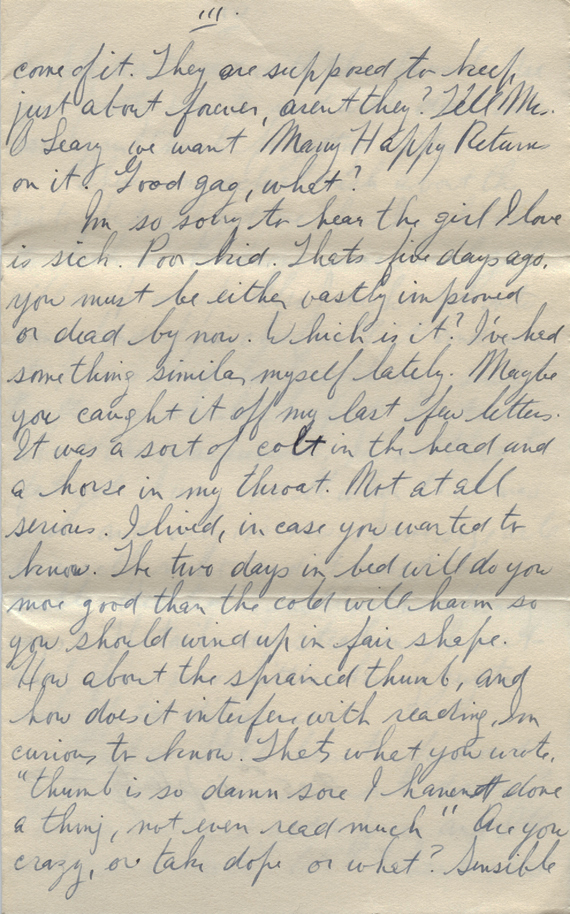 III.
come of it. They are supposed to keep
just about forever, aren't they? Tell Mrs.
O Leary we want Many Happy Returns
on it. Good gag, what?
Im so sorry to hear the girl I love
is sick. Poor kid. Thats five days ago,
you must be either vastly improved
or dead by now. Which is it? I've had
something similar myself lately. Maybe
you caught it off my last few letters.
It was a sort of colt in the head and
a horse in my throat. Not at all
serious. I lived, in case you wanted to
know. The two days in bed will do you
more good than the cold will harm so
you should wind up in fair shape.
How about the sprained thumb, and
how does it interfere with reading, Im
curious to know. Thats what you wrote,
"thumb is so damn sore I havent done
a thing, not even read much" Are you
crazy, or take dope or what? Sensible